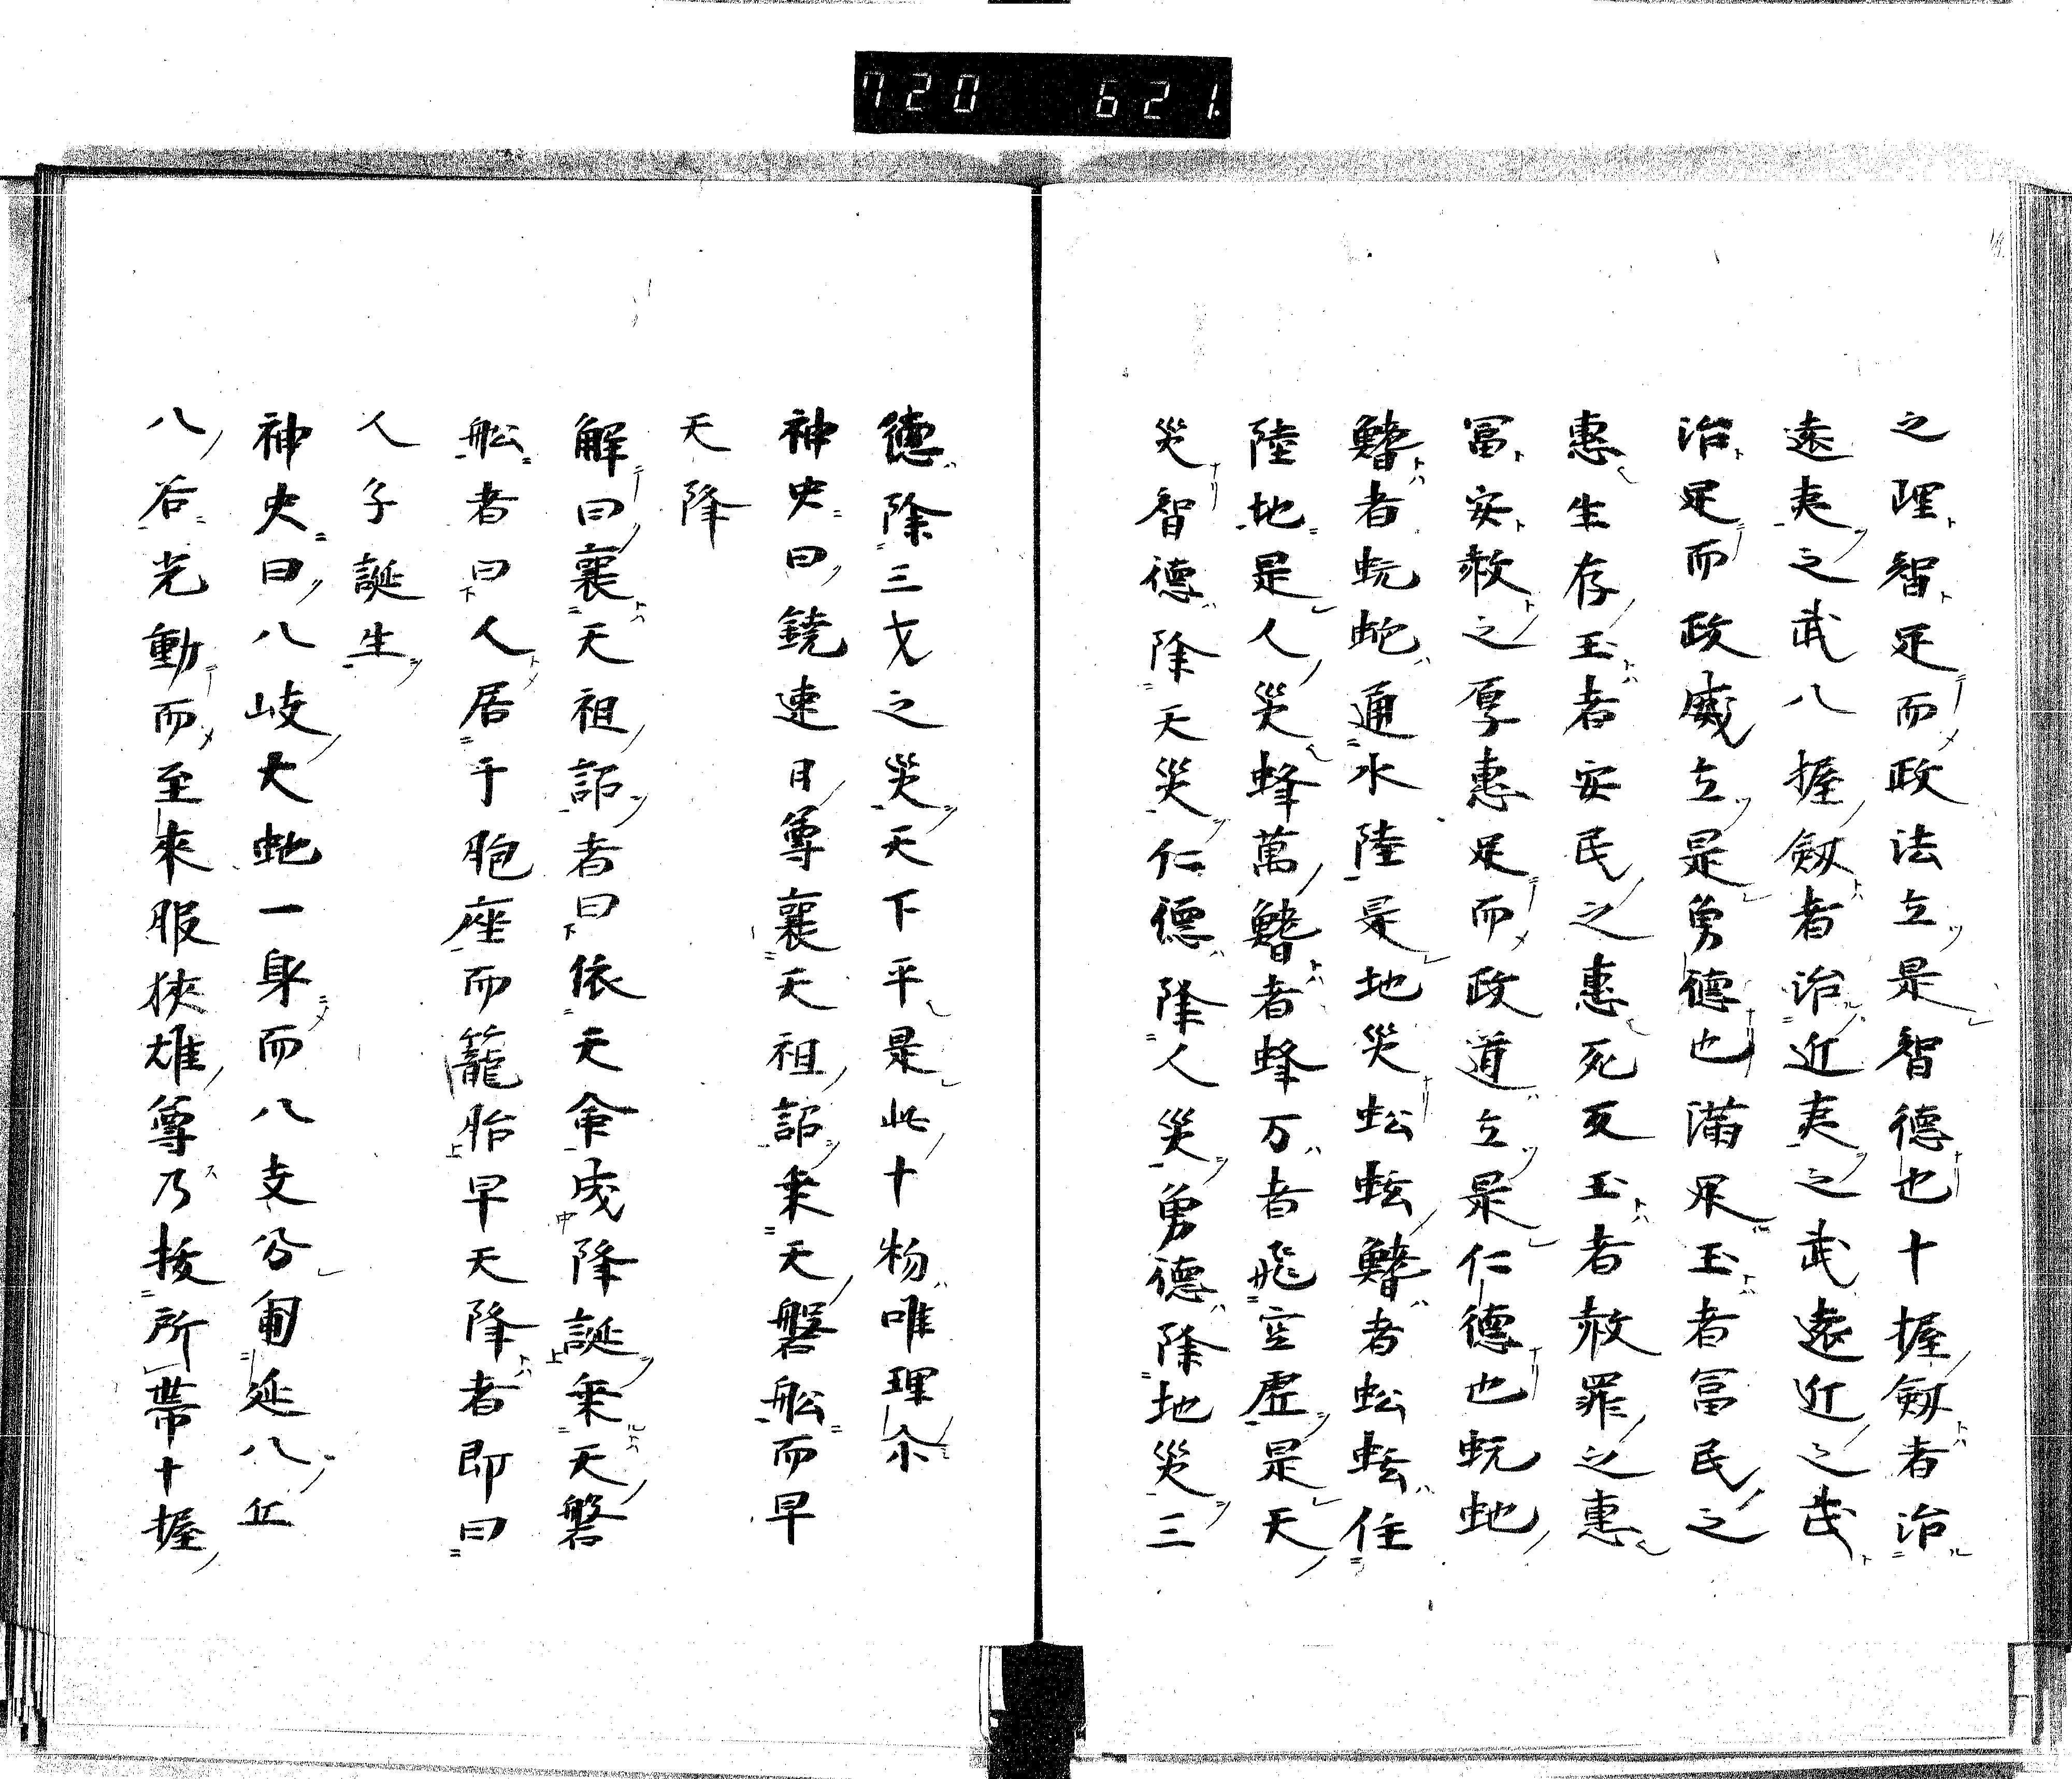 720 621
之理智足而政法立是智德也十握劔者治
遠夷之武八握劔者治近夷之武遠近之武
治足而政威立是勇德也滿足玉者冨民之
惠生存玉者安民之惠死反玉者赦罪之惠
冨安赦之厚惠足而政道立是仁德也蚖虵
鰭者蚖蛇通水陸是地災蚣蛟鰭者蚣蛟住
陸地是人災蜂萬鰭者蜂万者飛空虚是天
災智德除天災仁德降人災勇德除地災三
德除三才之災天下平是此十物唯理尒
神史曰鐃速日尊襄天祖詔乗天磐舩而早
天降
解曰襄天祖詔者曰依天命成降誕乗天磐
舩者曰人居于胞座而籠胎早天降者即曰
人子誕生
神史曰八岐大虵一身而八支分匍延八丘
八谷光動而至來服狹雄尊乃拔所帶十握